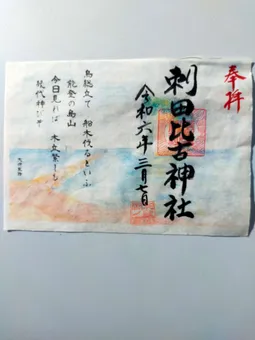 奉拝
刺田比古神社
令和六年三月七日
鳥総立て 船木伐るといふ
能登の島山
今日見れば 木立繁しも
幾代神びそ